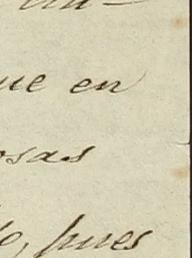 ue en
osas
o, pues